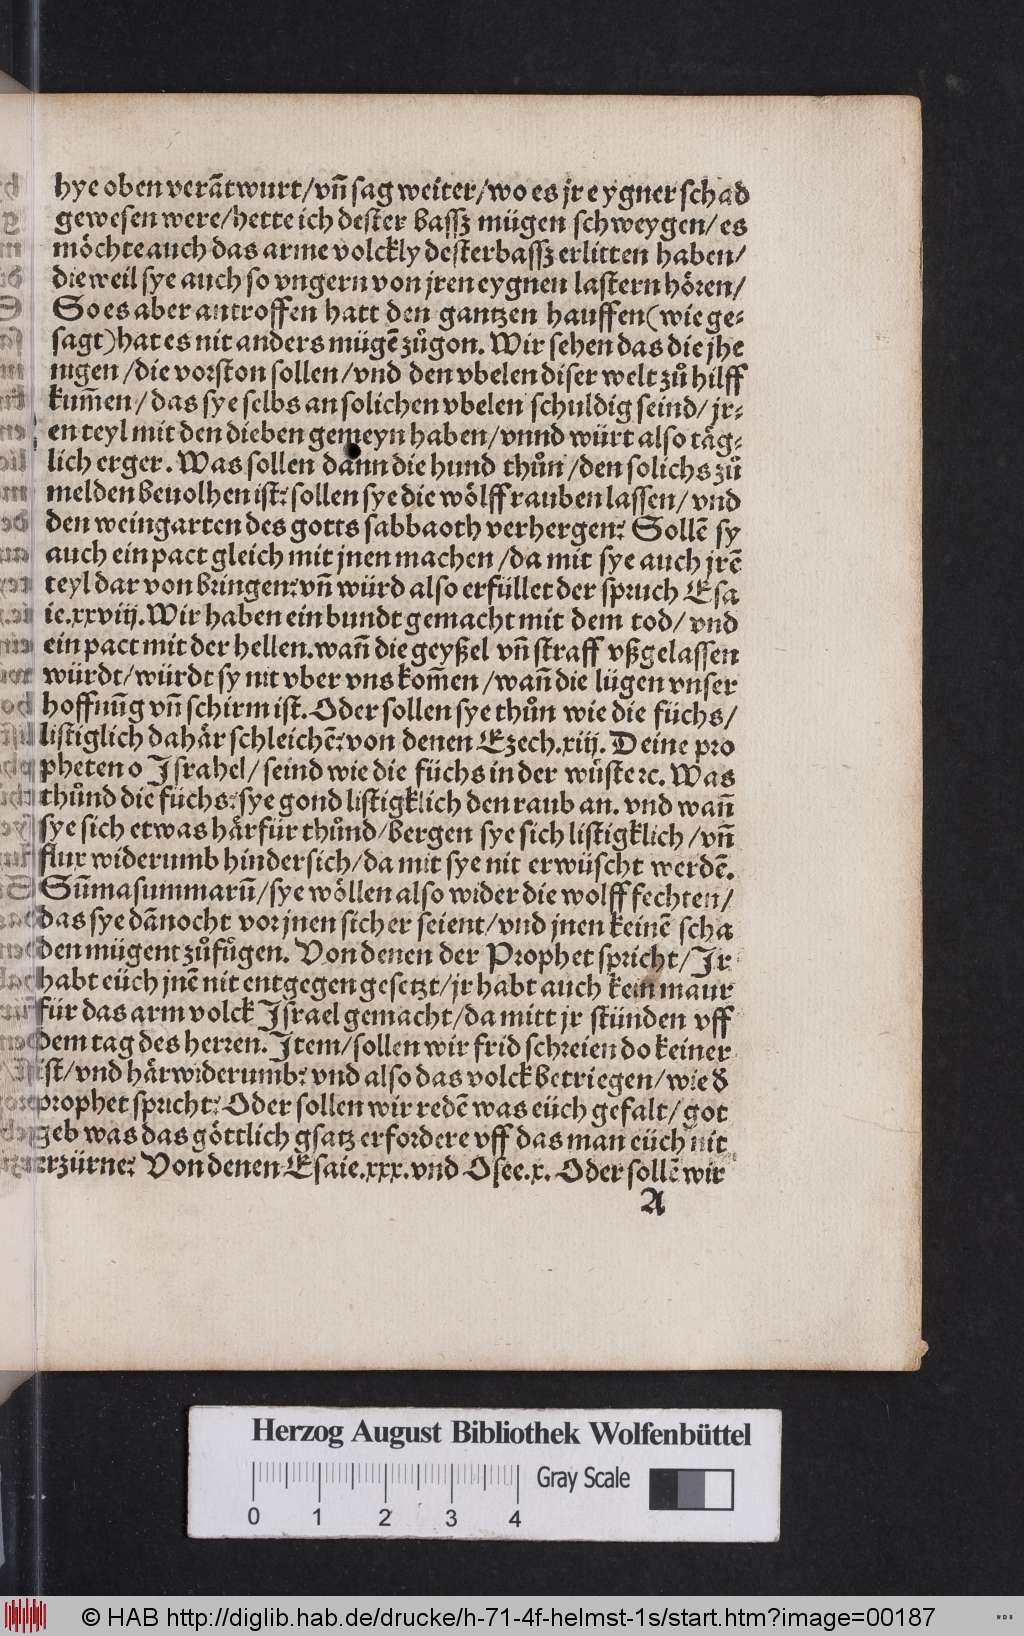 hye oben verãtwurt/vñ sag weiter/wo es jr eygner schad
gewesen were/hette ich dester bassz mügen schweygen/es
möchte auch das arme volckly desterbassz erlitten haben/
die weil sye auch so vngern von jren eygnen lastern hören/
So es aber antroffen hatt den gantzen hauffen(wie ge⸗
sagt)hat es nit anders mügẽ zů gon. Wir sehen das die jhe
nigen/die vorston sollen/vnd den vbelen diser welt zů hilff
kum̃en/das sye selbs an solichen vbelen schuldig seind/jr⸗
en teyl mit den dieben gemeyn haben/vnnd würt also täg⸗
lich erger. Was sollen dann die hund thůn/den solichs zů
melden beuolhen ist: sollen sye die wölff rauben lassen/vnd
den weingarten des gotts sabbaoth verhergen: Sollẽ sy
auch ein pact gleich mit jnen machen/da mit sye auch jrẽ
teyl dar von bringen: vñ würd also erfüllet der spruch Esa
ie.xxviij. Wir haben ein bundt gemacht mit dem tod/vnd
ein pact mit der hellen. wañ die geyßel vñ straff vßgelassen
würdt/würdt sy nit vber vns kom̃en/wañ die lügen vnser
hoffnũg vñ schirm ist. Oder sollen sye thůn wie die füchs/
listiglich dahär schleichẽ: von denen Ezech.xiij. Deine pro
pheten o Israhel/seind wie die füchs in der wüste ⁊c. Was
thůnd die füchs: sye gond listigklich den raub an. vnd wañ
sye sich etwas härfür thůnd/bergen sye sich listigklich/vñ
flux widerumb hindersich/da mit sye nit erwüscht werdẽ.
Sũma summarũ/sye wöllen also wider die wolff fechten/
das sye dãnocht vor jnen sicher seient/vnd jnen keinẽ scha
den mügent zůfůgen. Von denen der Prophet spricht/Ir
habt eüch jnẽ nit entgegen gesetzt/jr habt auch kein maur
für das arm volck Israel gemacht/da mitt jr stünden vff
dem tag des herren. Item/sollen wir frid schreien do keiner
ist/vnd härwiderumb: vnd also das volck betriegen/wie đ
prophet spricht: Oder sollen wir redẽ was eüch gefalt/got
geb was das göttlich gsatz erfordere vff das man eüch nit
erzürne: Von denen Esaie.xxx.vnd Osee.x. Oder sollẽ wir
A
Herzog August Bibliothek Wolfenbüttel
Gray Scale
0 1 2 3 4
© HAB http://diglib.hab.de/drucke/h-71-4f-helmst-1s/start.htm?image=00187
WDB